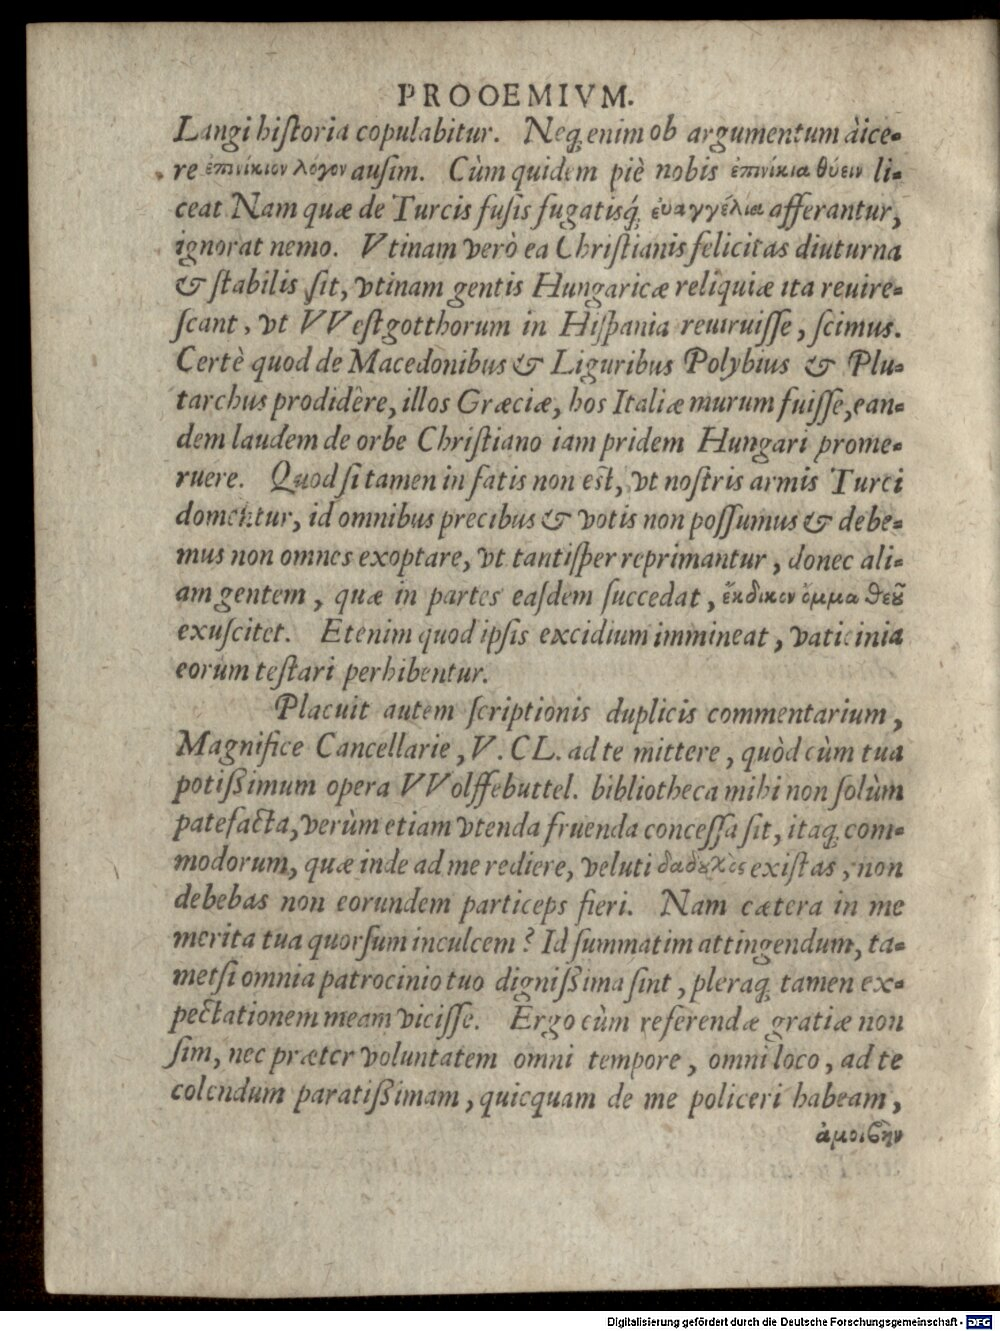 PROOEMIVM.
Langi hiſtoria copulabitur. Neq; enim ob argumentum dice-
re ἐπινίκιον λόγον auſim. Cùm quidem piè nobis ἐπινίκια θύειν li-
ceat Nam quæ de Turcis fuſis fugatisq́; ἐυαγγέλια afferantur,
ignorat nemo. Vtinam verò ea Chriſtianis felicitas diuturna
& ſtabilis ſit, vtinam gentis Hungaricæ reliquiæ ita reuire-
ſcant, vt VVeſtgotthorum in Hiſpania reuiruiſſe, ſcimus.
Certè quod de Macedonibus & Liguribus Polybius & Plu-
tarchus prodidêre, illos Græciæ, hos Italiæ murum fuiſſe, ean-
dem laudem de orbe Chriſtiano iam pridem Hungari prome-
ruere. Quod ſi tamen in fatis non est, vt noſtris armis Turci
domentur, id omnibus precibus & votis non poſſumus & debe-
mus non omnes exoptare, vt tantiſper reprimantur, donec ali-
am gentem, quæ in partes eaſdem ſuccedat, ἔκδικον ὄμμα θεȣ͂
exuſcitet. Etenim quod ipſis excidium immineat, vaticinia
eorum teſtari perhibentur.
Placuit autem ſcriptionis duplicis commentarium,
Magnifice Cancellarie, V. CL. ad te mittere, quòd cùm tua
potiſsimum opera VVolffebuttel. bibliotheca mihi non ſolùm
patefacta, verùm etiam vtenda fruenda conceſſa ſit, itaq; com-
modorum, quæ inde ad me rediere, veluti δαδȣχος exiſtas, non
debebas non eorundem particeps fieri. Nam cætera in me
merita tua quorſum inculcem? Id ſummatim attingendum, ta-
metſi omnia patrocinio tuo digniſsima ſint, pleraq; tamen ex-
pectationem meam viciſſe. Ergo cùm referendæ gratiæ non
ſim, nec præter voluntatem omni tempore, omni loco, ad te
colendum paratiſsimam, quicquam de me policeri habeam,
ἀμοιβὴν
Digitalisierung gefördert durch die Deutsche Forschungsgemeinschaft - DFG